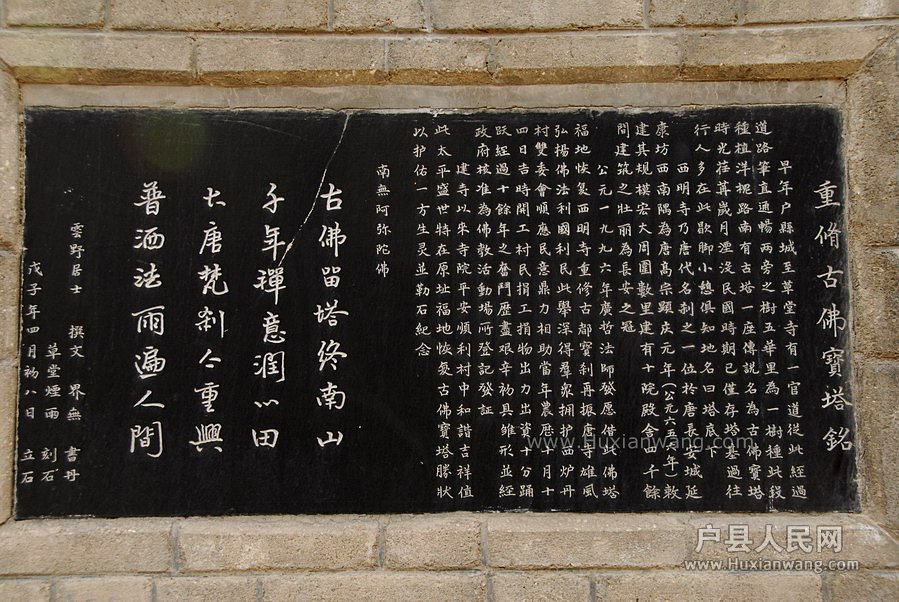 重脩古佛寶塔銘
早年户縣城至草堂寺有一官道從此經過
道路筆直通暢兩旁之樹五華里為一樹種此段
種植洋槐路南有古塔一座傳説名為古佛寶塔
時光荏苒歲月湮没民國時期已僅存塔基過往
行人多在此歇脚小憩俱知地名曰塔底下
西明寺乃唐代名刹之一位於唐長安城延
康坊西南隅為唐高宗顯庆元年(公元六五六年)敕
建其規模宏大周圍數里建有十院殿舍四千餘
間建筑之壮丽為長安之冠
公元一九九六年廣哲法師發愿借此佛塔
福地恢复西明寺重修古都寳利再振盧寺雄風
弘揚佛法利國利民此舉深得羣衆拥护西炉丹
村雙委會順應民意鼎力相助當年農歷二月十
四日吉時開工村民捐工捐物出力出資十分踊
跃經過十餘年之奮鬥歷盡艰辛初具雏形並經
政府核准為佛教活動場所登記發証
建寺以來寺院平安順利村中和諧吉祥值
此太平盛世特在原址福地恢复古佛寶塔勝狀
以护佑一方生灵並勒石紀念
南無阿弥陀佛
古佛留塔终南山
千年禪意润心田
大唐梵刹今重興
普洒法雨遍人間
雲野居士 撰文 界無 書丹
草堂煙雨 刻石
戊子年四月初八日 立石
www.Huxianwang.com
户县人民网
www.Huxianwang.com